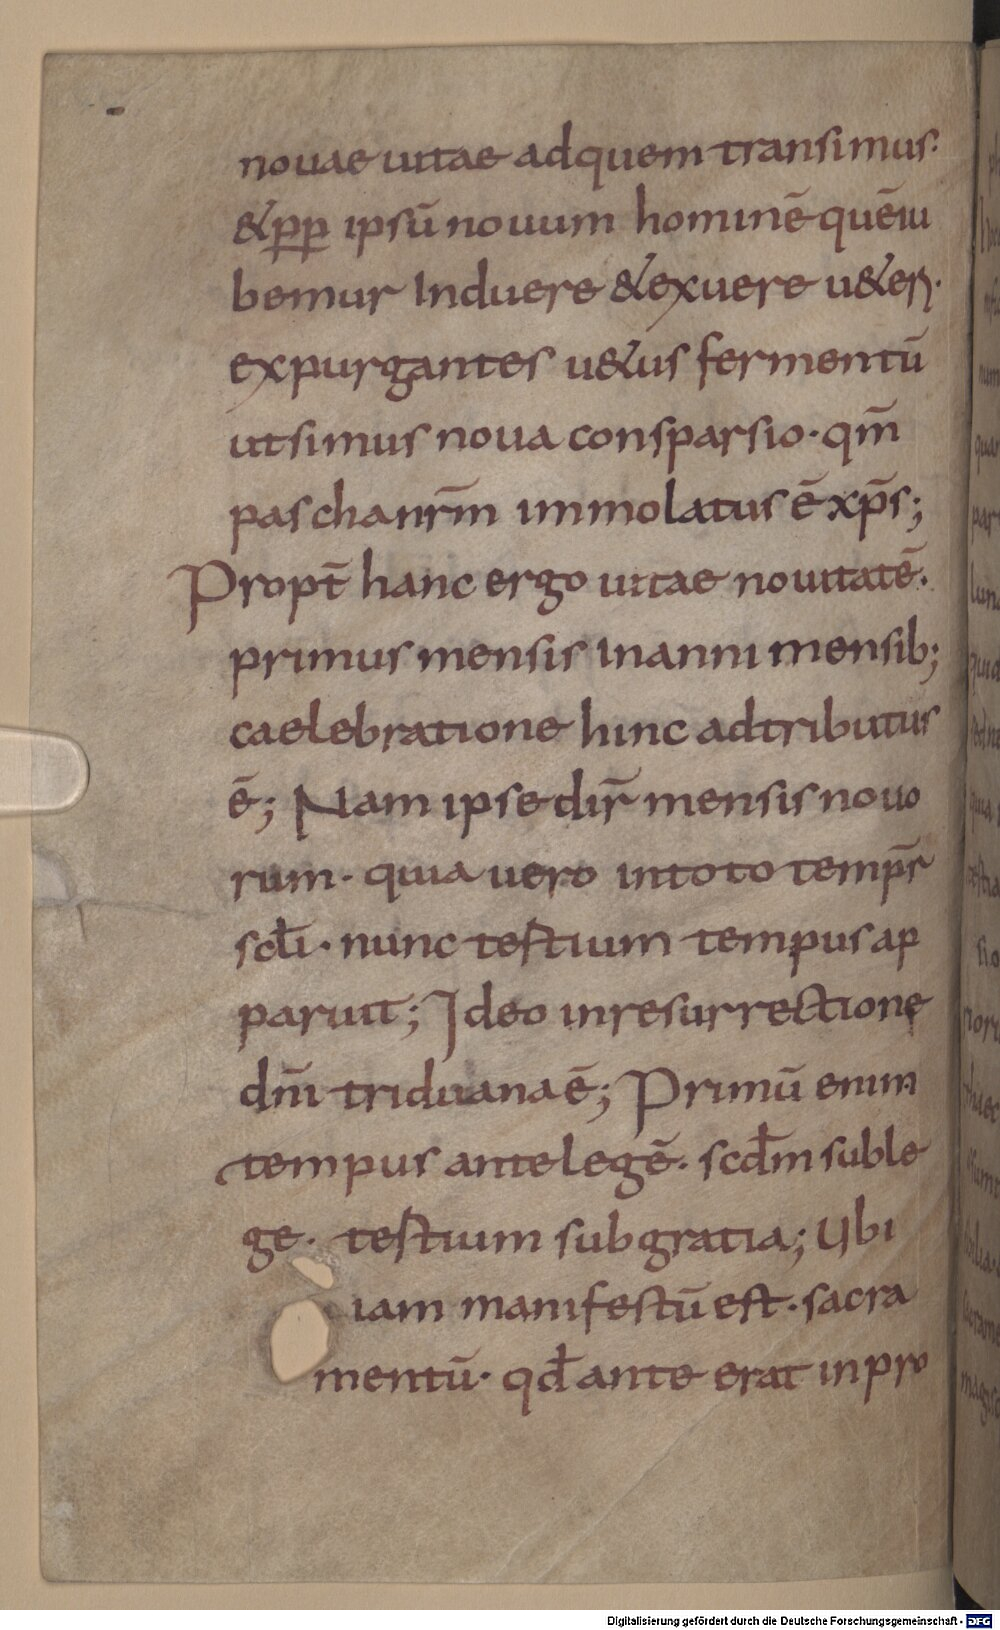 nouae uitae adquem transimus·
&ꝑꝑ ipsū nouum hominē quē iu
bemur Induere &exuere u&eꝝ·
expurgantes u&us fermentū
utsimus noua consparsio· qm̄
pascha nr̄m immolatus ē xp̄s;
Propt̄ hanc ergo uitae nouitatē·
primus mensis inanni mensib;
caelebratione hinc adtributus
ē; Nam ipse dir̄ mensis nouo
rum· quia uero intoto temp̄r
scłi· nunc tertium tempus ap
paruit; Ideo inresurrectione
dn̄i triduana ē; Primū enim
tempus ante legē· scd̄m suble
ge· tertium sub gratia; Ubi
iam manifestū est· sacra
mentū· qđ ante erat inpro
Digitalisierung gefördert durch die Deutsche Forschungsgemeinschaft - DFG